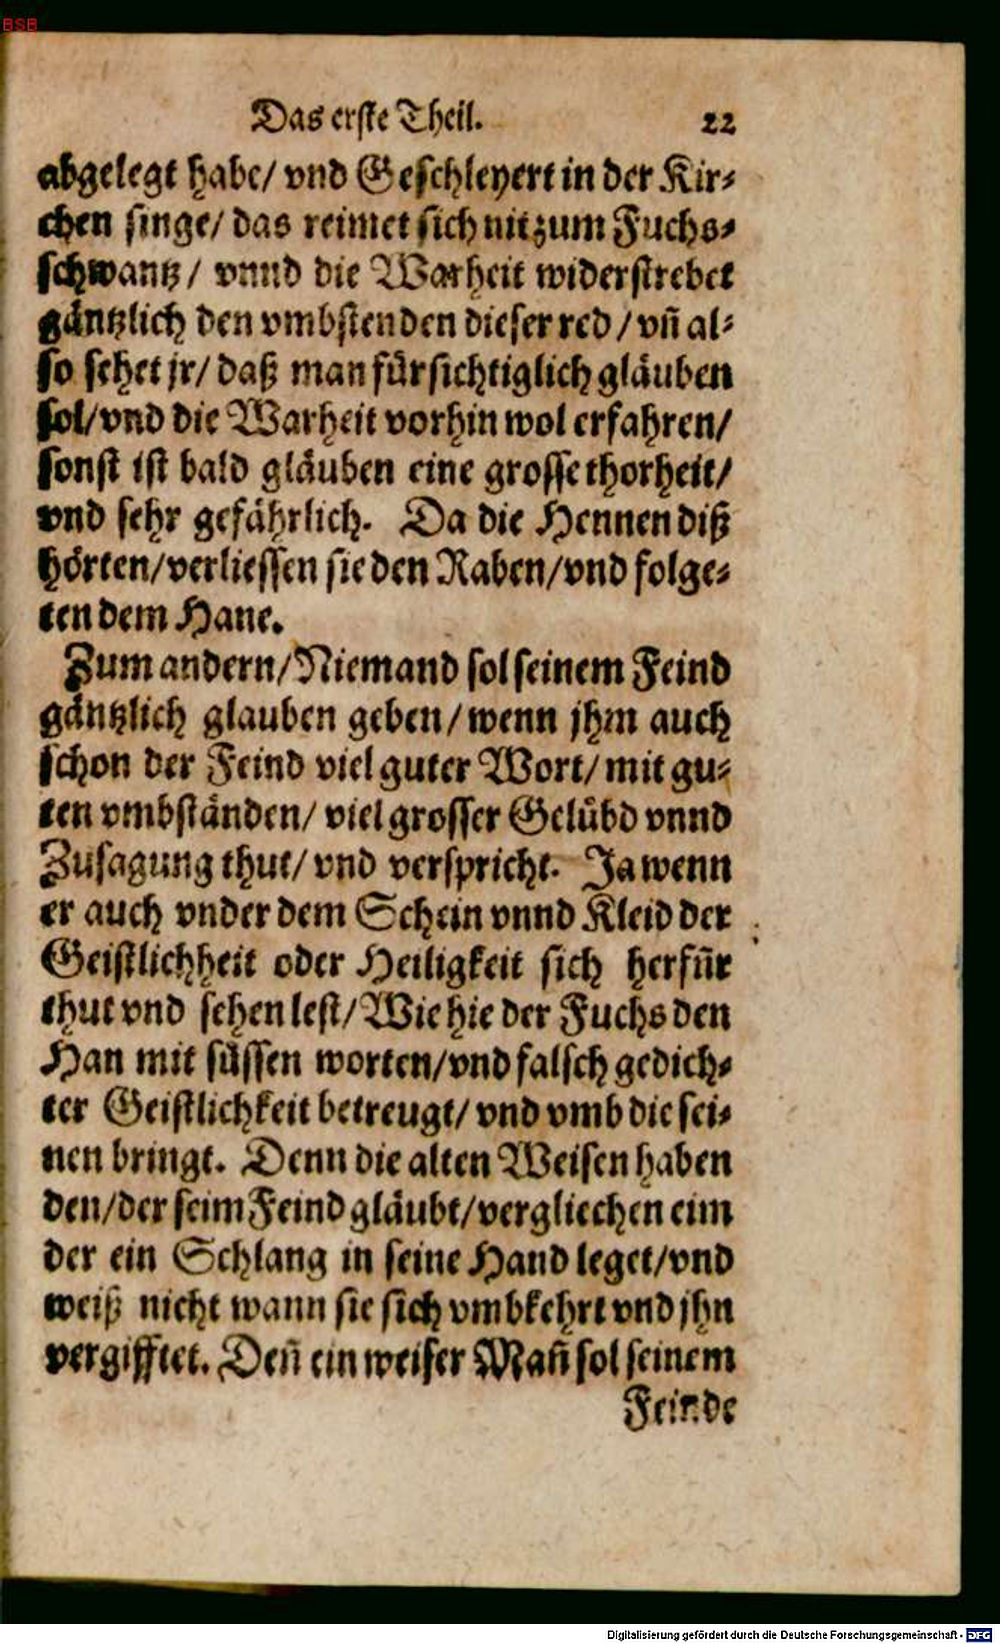 BSB
Das erste Theil. 22
abgelegt habe/ vnd Geschleyert in der Kir-
chen singe/ das reimet sich nit zum Fuchs-
schwantz/ vnnd die Warheit widerstrebet
gäntzlich den vmbstenden dieser red/ vñ al-
so sehet jr/ daß man fürsichtiglich gläuben
sol/ vnd die Warheit vorhin wol erfahren/
sonst ist bald gläuben eine grosse thorheit/
vnd sehr gefährlich. Da die Hennen diß
hörten/ verliessen sie den Raben/ vnd folge-
ten dem Hane.
Zum andern/ Niemand sol seinem Feind
gäntzlich glauben geben/ wenn jhm auch
schon der Feind viel guter Wort/ mit gu-
ten vmbständen/ viel grosser Gelübd vnnd
Zusagung thut/ vnd verspricht. Ja wenn
er auch vnder dem Schein vnnd Kleid der
Geistlichheit oder Heiligkeit sich herfür
thut vnd sehen lest/ Wie hie der Fuchs den
Han mit süssen worten/ vnd falsch gedich-
ter Geistlichkeit betreugt/ vnd vmb die sei-
nen bringt. Denn die alten Weisen haben
den/ der seim Feind gläubt/ vergliechen eim
der ein Schlang in seine Hand leget/ vnd
weiß nicht wann sie sich vmbkehrt vnd jhn
vergifftet. Deñ ein weiser Mañ sol seinem
Feinde
Digitalisierung gefördert durch die Deutsche Forschungsgemeinschaft - DFG